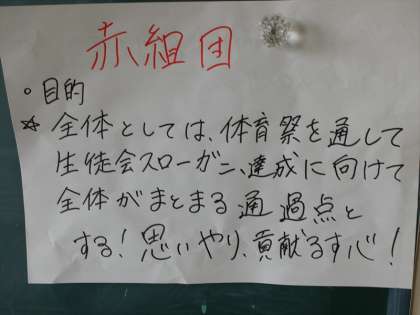 赤組団
○目的
☆全体としては、体育祭を通して
生徒会スローガン、達成に向けて
全体がまとまる通過点と
する!思いやり、貢献るす心!